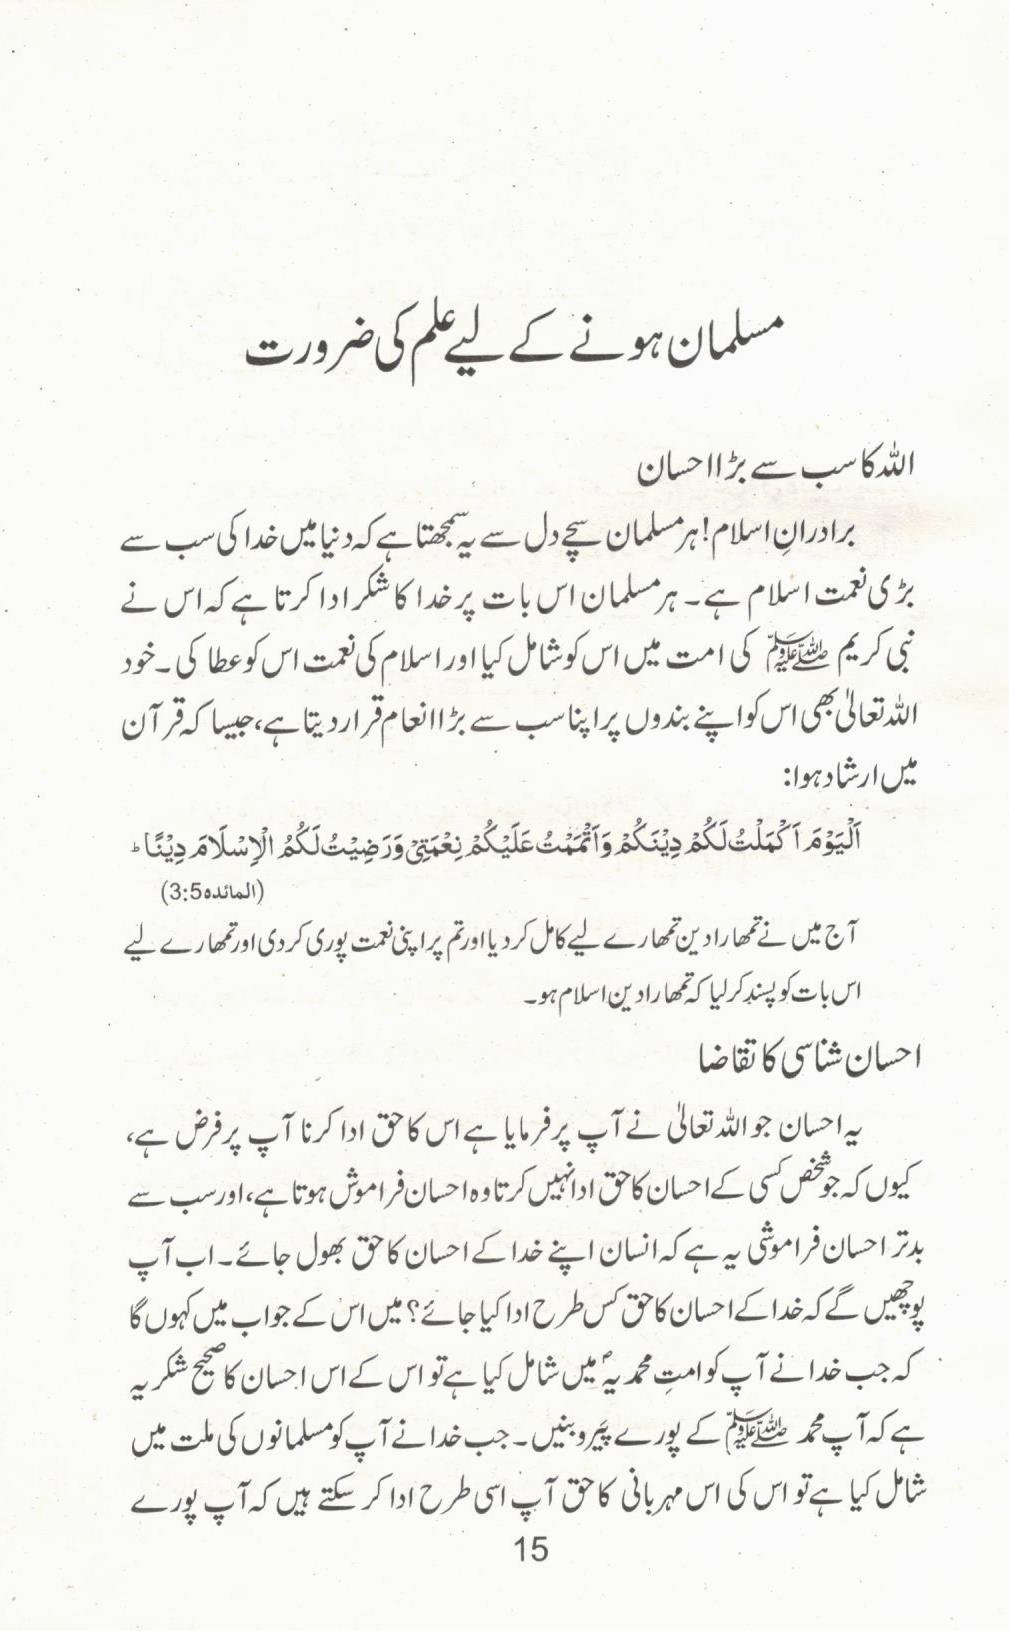 مسلمان ہونے کے لیے علم کی ضرورت
اللہ کا سب سے بڑا احسان
برادرانِ اسلام! ہر مسلمان سچے دل سے یہ سمجھتا ہے کہ دنیا میں خدا کی سب سے
بڑی نعمت اسلام ہے۔ ہر مسلمان اس بات پر خدا کا شکر ادا کرتا ہے کہ اس نے
نبی کریم ﷺ کی امت میں اس کو شامل کیا اور اسلام کی نعمت اس کو عطا کی۔ خود
اللہ تعالیٰ بھی اس کو اپنے بندوں پر اپنا سب سے بڑا انعام قرار دیتا ہے، جیسا کہ قرآن
میں ارشاد ہوا:
اَلْیَوْمَ اَکْمَلْتُ لَکُمْ دِیْنَکُمْ وَاَتْمَمْتُ عَلَیْکُمْ نِعْمَتِیْ وَرَضِیْتُ لَکُمُ الْاِسْلَامَ دِیْنًا ؕ
(المائدہ 3:5)
آج میں نے تمھارا دین تمھارے لیے کامل کر دیا اور تم پر اپنی نعمت پوری کر دی اور تمھارے لیے
اس بات کو پسند کر لیا کہ تمھارا دین اسلام ہو۔
احسان شناسی کا تقاضا
یہ احسان جو اللہ تعالیٰ نے آپ پر فرمایا ہے اس کا حق ادا کرنا آپ پر فرض ہے،
کیوں کہ جو شخص کسی کے احسان کا حق ادا نہیں کرتا وہ احسان فراموش ہوتا ہے، اور سب سے
بدتر احسان فراموشی یہ ہے کہ انسان اپنے خدا کے احسان کا حق بھول جائے۔ اب آپ
پوچھیں گے کہ خدا کے احسان کا حق کس طرح ادا کیا جائے؟ میں اس کے جواب میں کہوں گا
کہ جب خدا نے آپ کو امتِ محمدیہؐ میں شامل کیا ہے تو اس کے اس احسان کا صحیح شکریہ
ہے کہ آپ محمد ﷺ کے پورے پَیرو بنیں۔ جب خدا نے آپ کو مسلمانوں کی ملت میں
شامل کیا ہے تو اس کی اس مہربانی کا حق آپ اسی طرح ادا کر سکتے ہیں کہ آپ پورے
15